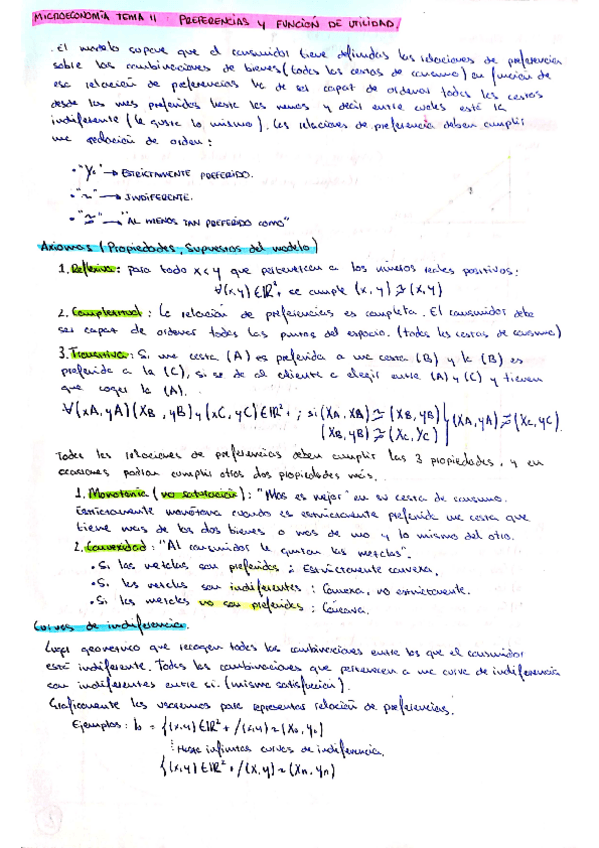 MICROECONOMÍA TEMA 11: PREFERENCIAS Y FUNCIÓN DE UTILIDAD.
El modelo supone que el consumidor tiene definidas las relaciones de preferencia
sobre las combinaciones de bienes (todas las cestas de consumo) en función de
esa relación de preferencias ha de ser capaz de ordenar todas las cestas
desde las mas preferidas hasta las menos y decir entre cuales está la
indiferente (le gusta lo mismo). Las relaciones de preferencia deben cumplir
una relación de orden:
• "≻" → ESTRICTAMENTE PREFERIDO.
• "~" → INDIFERENTE.
• "≿" → "AL MENOS TAN PREFERIDO COMO"
Axiomas (Propiedades, Supuestos del modelo)
1. Reflexiva: para todo x e y que pertenezcan a los números reales positivos:
∀(x,y) ∈ ℝ²+ se cumple (x,y) ≿ (x,y)
2. Completitud: La relación de preferencias es completa. El consumidor debe
ser capaz de ordenar todos los puntos del espacio. (todas las cestas de consumo)
3. Transitiva: Si una cesta (A) es preferida a una cesta (B) y la (B) es
preferida a la (C), si se da al cliente a elegir entre (A) y (C) y tienen
que coger la (A).
∀(xA,yA)(XB,yB)y(xC,yC)∈ℝ²+; si (XA,XA) ≿ (XB,yB) } (XA,yA) ≿ (Xc,yC)
(XB,yB) ≿ (Xc,Yc)
Todas las relaciones de preferencias deben cumplir las 3 propiedades, y en
ocasiones podrían cumplir otras dos propiedades más.
1. Monotonía (no saturación): "Mas es mejor" en su cesta de consumo.
Estrictamente monótona cuando es estrictamente preferida una cesta que
tiene mas de los dos bienes o mas de uno y lo mismo del otro.
2. Convexidad: "Al consumidor le gustan las mezclas".
• Si las mezclas son preferidas: Estrictamente convexa.
• Si las mezclas son indiferentes: Convexa, no estrictamente.
• Si las mezclas no son preferidas: Cóncava.
Curvas de indiferencia.
Lugar geométrico que recogen todas las combinaciones entre las que el consumidor
está indiferente. Todas las combinaciones que pertenecen a una curva de indiferencia
son indiferentes entre si. (misma satisfacción).
Gráficamente las usaremos para representar relación de preferencias.
Ejemplos: I₀ = {(x,y) ∈ ℝ²+ / (x,y) ~ (X₀,y₀)
Hasta infinitas curvas de indiferencia.
{(x,y) ∈ ℝ²+ / (x,y) ~ (Xn,yn)